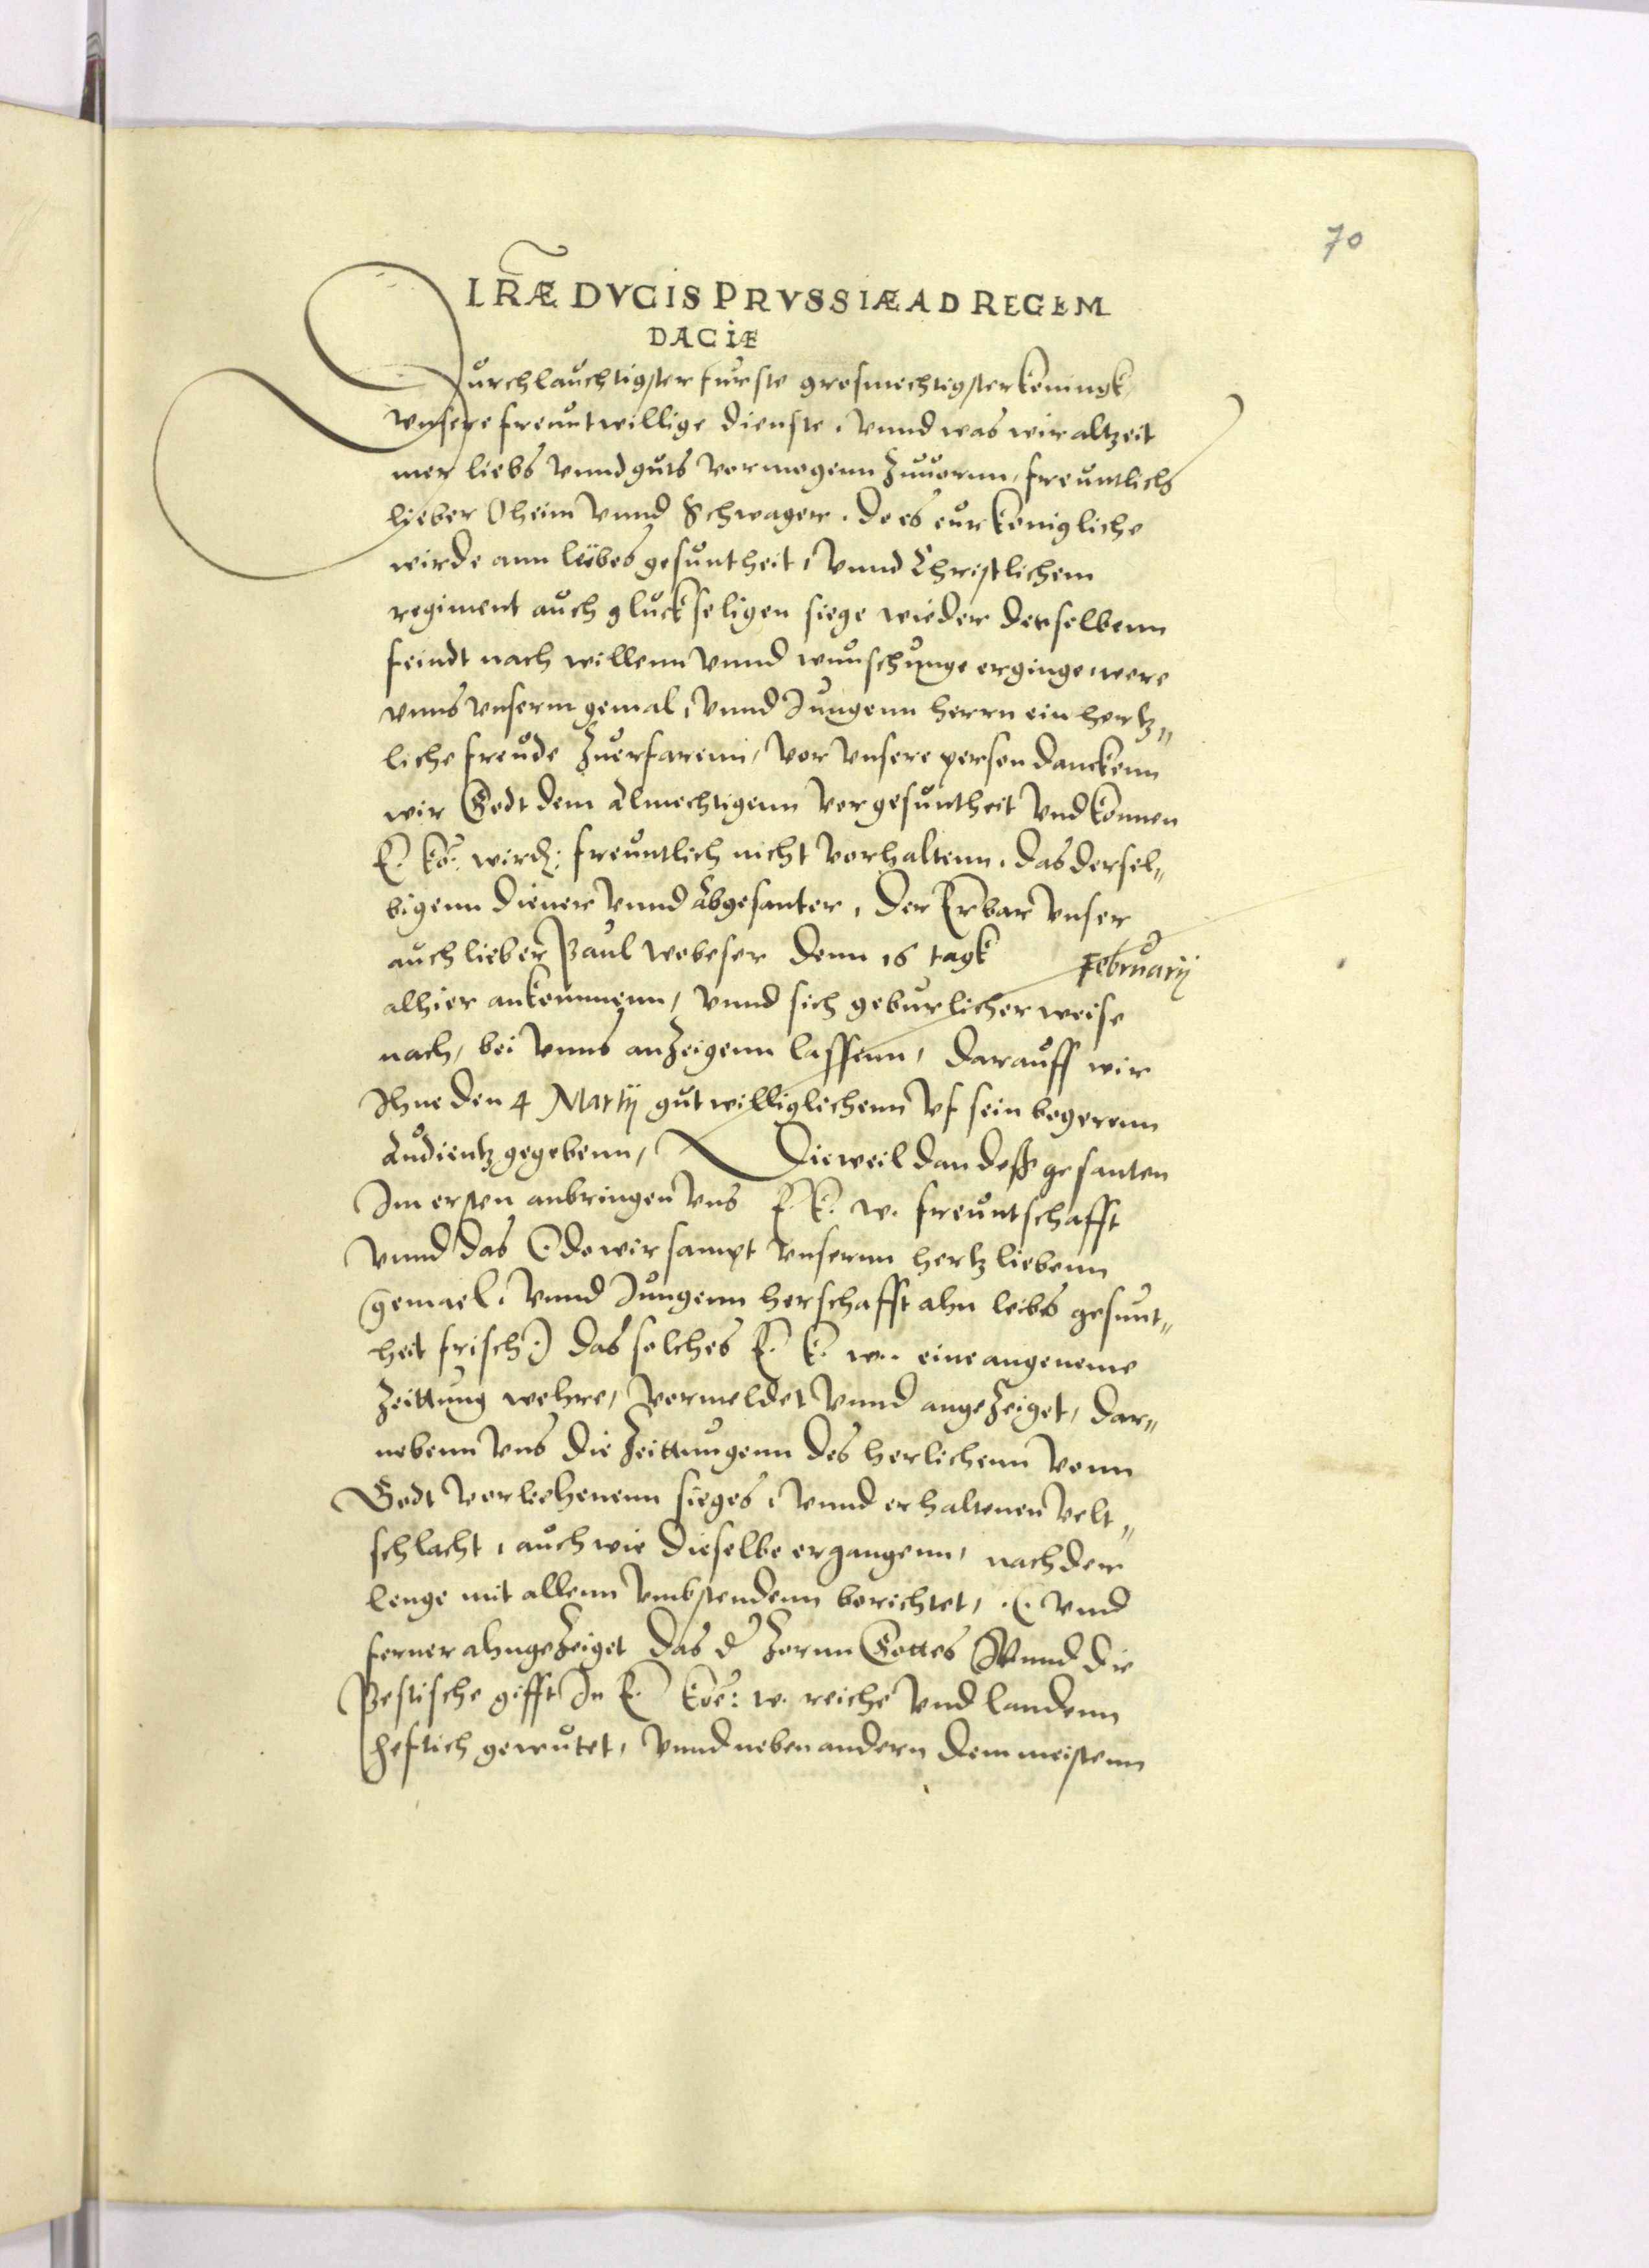 70
LR̃Æ DVCIS PRVSSIÆ AD REGEM
DACIÆ
Durchlauchtigster furste grosmechtigster koningk
vnsere freuntwillige dienste, vnnd was wir altzeit
mer liebs vnnd guts vormogenn zuuornn, freuntlichs
lieber Oheim vnnd Schwager. do es eur konigliche
wirde ann leibes gesuntheit, vnnd Christlichem
regiment auch gluckseligen siege wieder derselbenn
feindt nach willenn vnnd wunschunge erginge were
vnns vnserm gemal, vnnd Jungenn herrn ein hertz„
liche freude zuerfarenn, vor vnsere person danckenn
wir Godt dem Almechtigenn vor gesuntheit vnd konnen
E. ko: wird: freuntlich nicht vorhaltenn, das dersel„
bigenn diener vnnd Abgesanter, der Erbar vnser
auch lieber Paul Wobeser denn 16 tagk Februarij
alhier ankommenn, vnnd sich geburlicher weise
nach, bei vnns anzeigenn lassenn, darauff wir
Ihne den 4 Martij gutwilliglichenn vf sein begerenn
Audientz gegebenn, Dieweil dan deß gesanten
Im ersten anbringen vns E. k. w. freuntschafft
vnnd das (do wir sampt vnserm hertz liebenn
gemael, vnnd Jungenn herschafft ahn leibs gesunt„
heit frisch) das solches E. k. w. eine angeneme
zeittung wehre, vormeldet vnnd angezeiget, dar„
nebenn vns die zeittungenn des herlichenn vonn
Godt vorliehenenn sieges, vnnd erhaltenen velt„
schlacht, auch wie dieselbe ergangenn, nach der
lenge mit allenn vmbstendenn berichtet, (vnnd
ferner ahngezeiget das d' zornn Gottes vnnd die
Pestische gifft In E. koe: w. reiche vnd landenn
heftich gewutet, vnnd neben andern dem meistenn